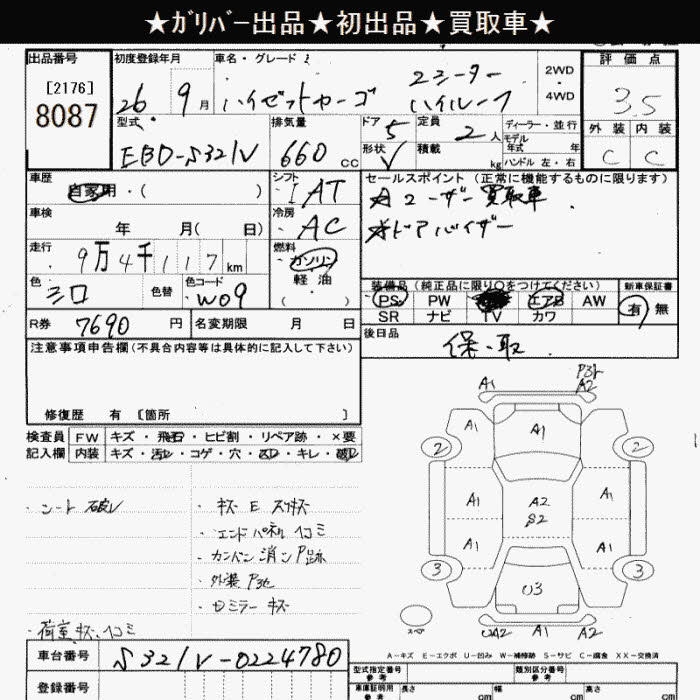 ★ガリバー出品★初出品★買取車★
出品番号 初度登録年月 車名・グレード 評価点
[2176] 8087
26年 9月 ハイゼットカーゴ 2シーター ハイルーフ 2WD・4WD 3.5
型式 排気量 ドア 5 定員 2人 ディーラー・並行 外装 内装
EBD-S321V 660cc 形状 V 積載 kg モデル年式 年 ハンドル 左・右 C C
車歴 シフト セールスポイント (正常に機能するものに限ります)
自家用・( ) I AT ☆ユーザー買取車
車検 年 月( 日) 冷房 AC ☆ドアバイザー
走行 9万4千117km 燃料 ガソリン 軽油 ( )
色 シロ 色替 色コード W09
装備品 (純正品に限り○をつけてください) 新車保証書
PS PW エアB AW 有 無
SR ナビ TV カワ
R券 7690円 名変期限 月 日 後日品 保、取
注意事項申告欄 (不具合内容等は具体的に記入して下さい)
修復歴 有 [箇所 ]
検査員 FW キズ・飛石・ヒビ割・リペア跡・×要
記入欄 内装 キズ・汚レ・コゲ・穴・凹ミ・キレ・破レ
・シート破レ
・キズ E スリキズ
・エンドパネル凹コミ
・カンバン消シP跡
・外装P3他
・Dミラーキズ
・荷室キズ、凹コミ
A1 P3 A2
A1 A1
2 2
A1 A2 S2 A1
A1 A1
3 U3 3
スペア UA2 A1 A2
A-キズ E-エクボ U-凹み W-補修跡 S-サビ C-腐食 XX-交換済
車台番号 S321V-0224780
登録番号
型式指定番号 参考 類別区分番号 参考
車庫証明用 参考 長さ cm 幅 cm 高さ cm